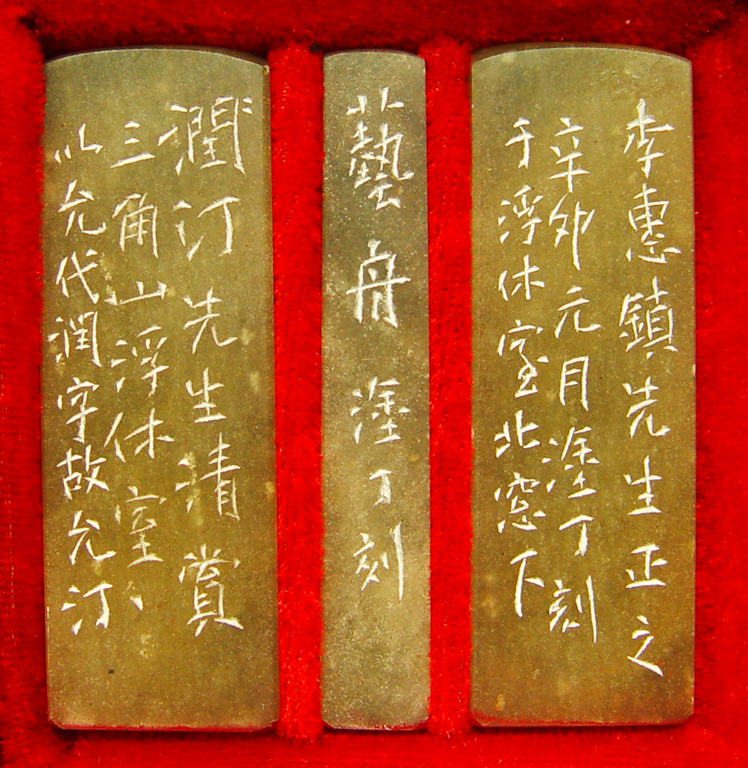 李惠鎮先生正之
辛卯元月塗丁刻
于浮休室北窓下
藝舟 塗丁刻
潤汀先生清賞
三角山浮休室
以允代潤字故允汀